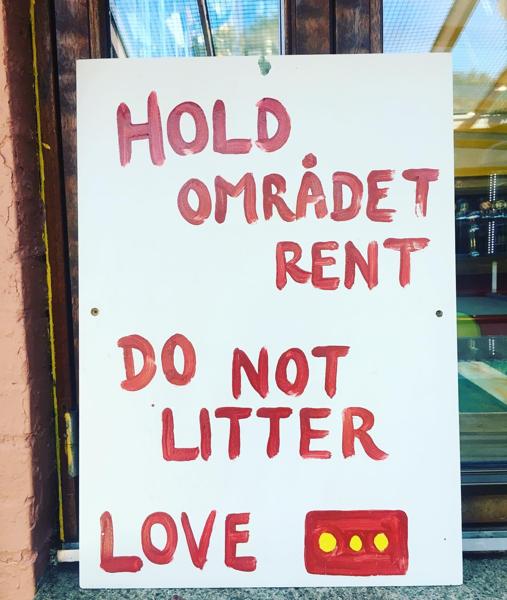 HOLD
OMRÅDET
RENT
DO NOT
LITTER
LOVE